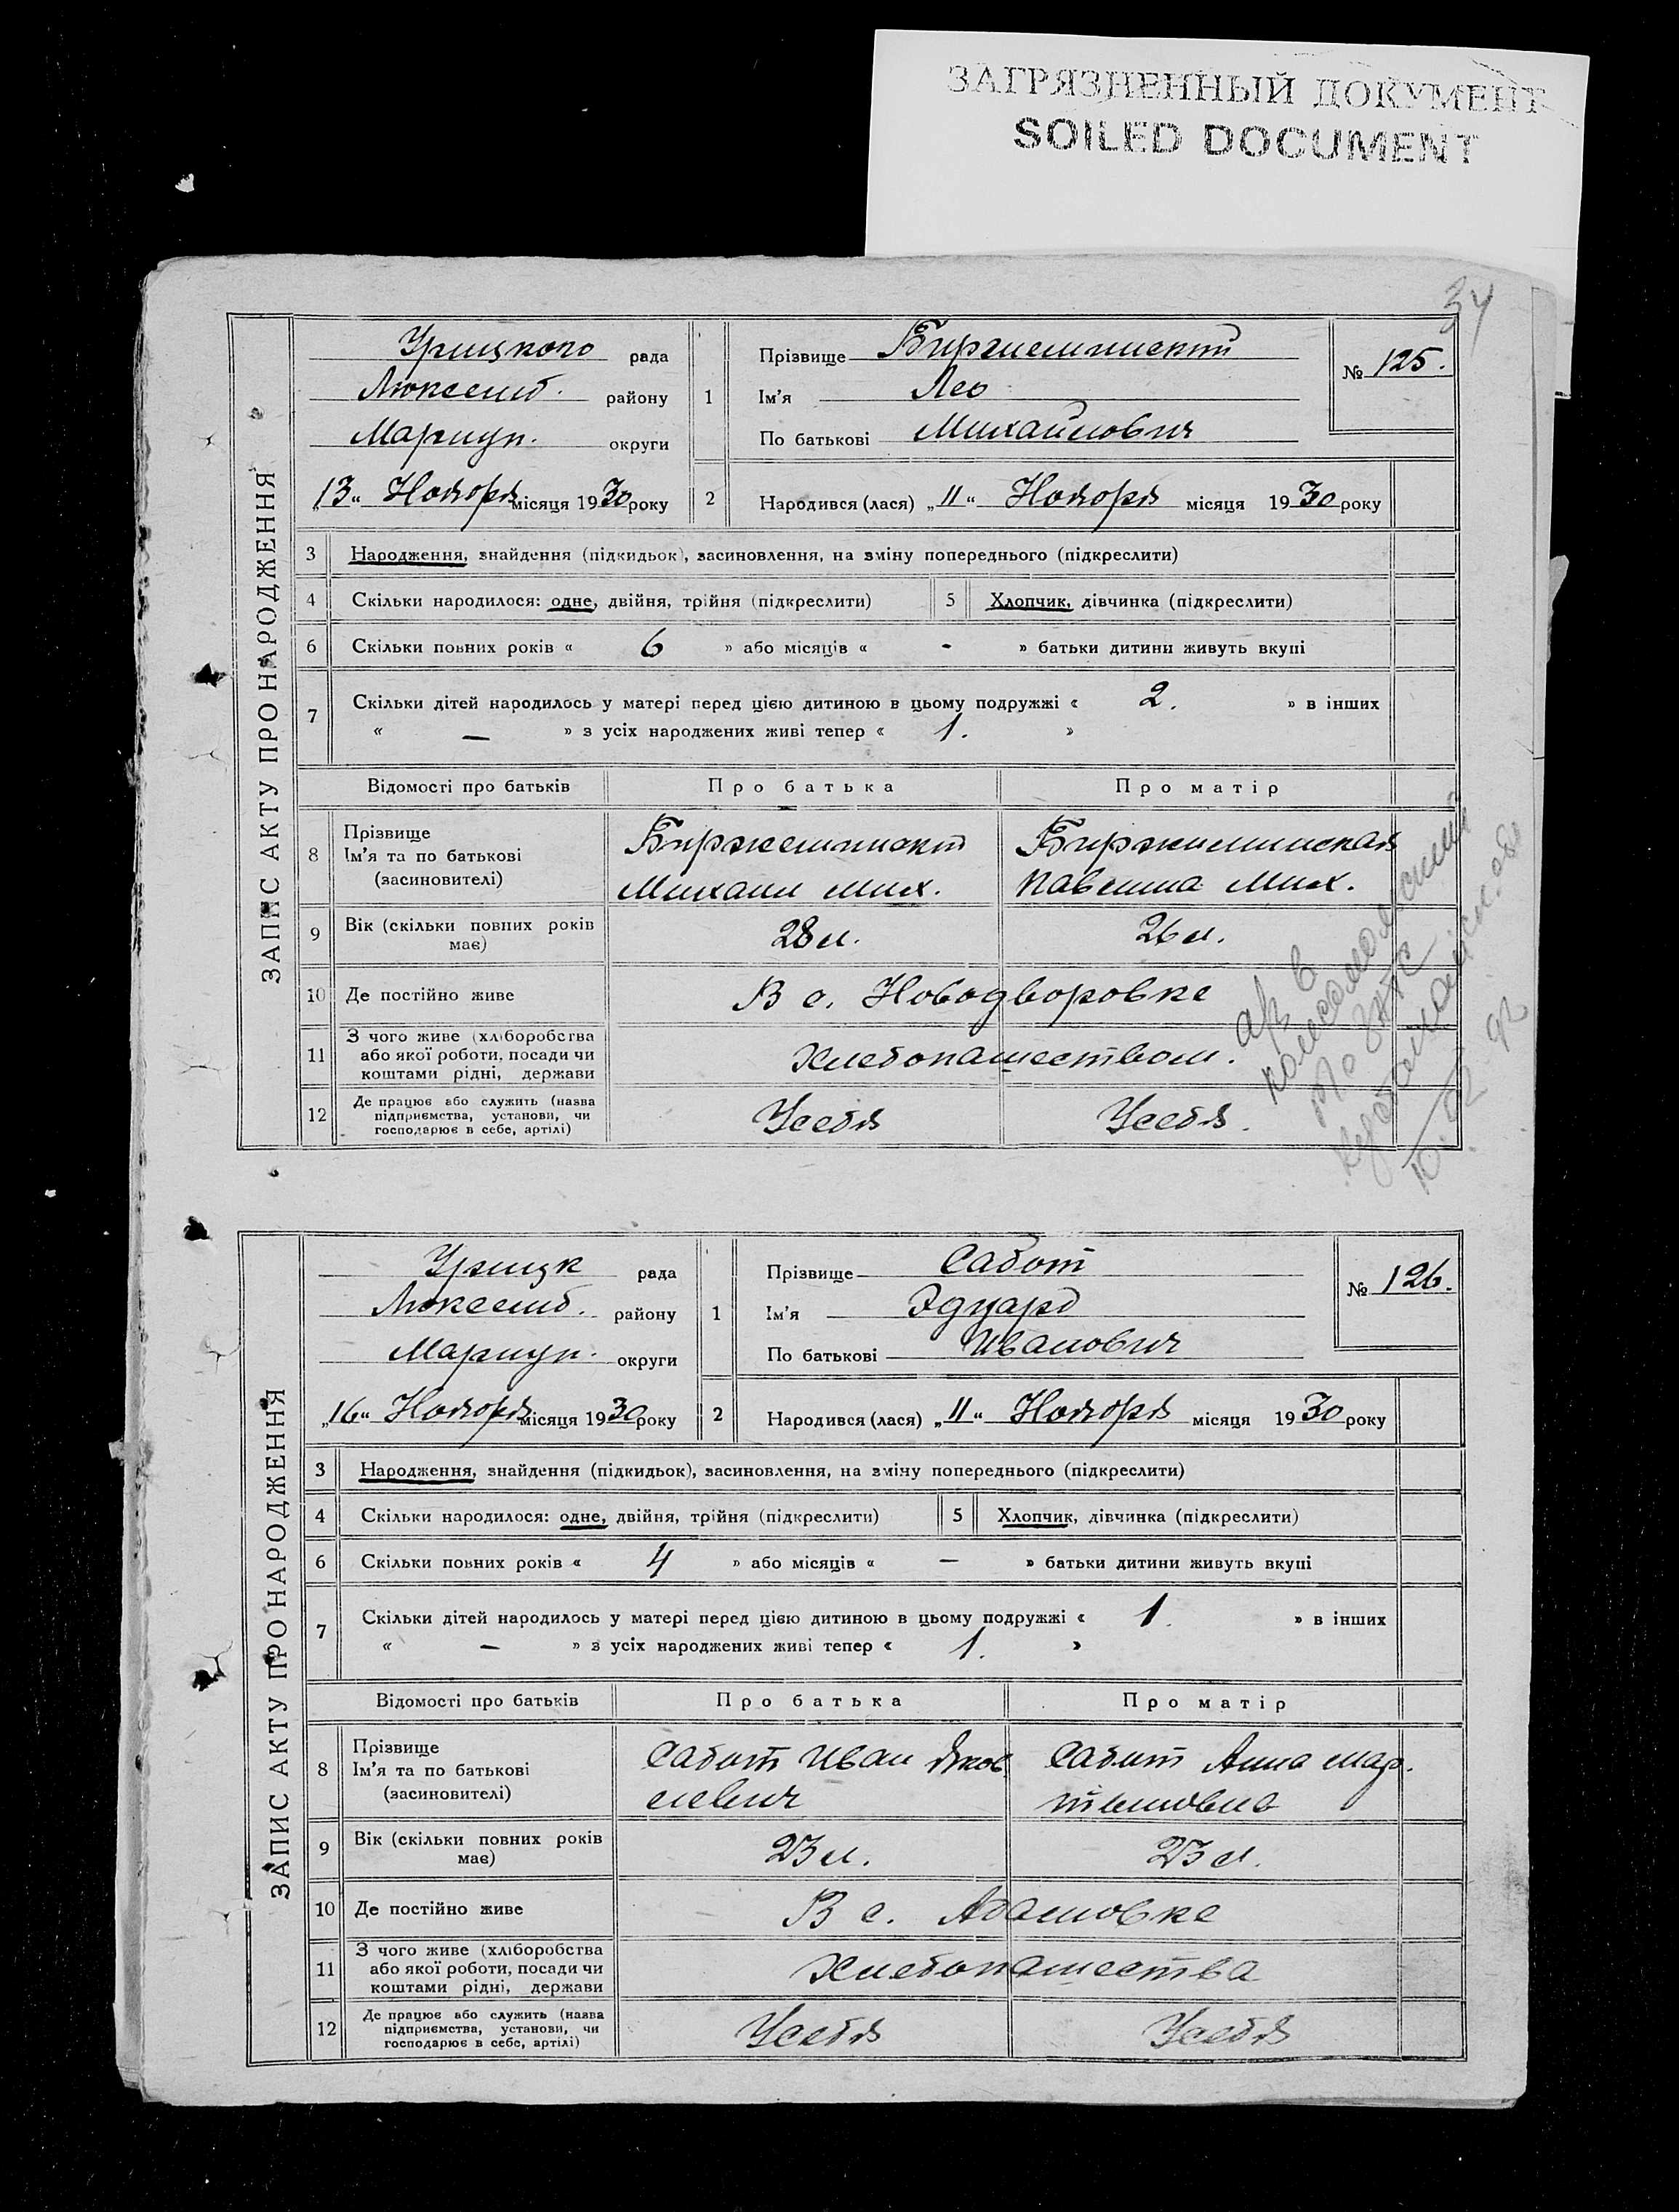 ЗАГРЯЗНЕННЫЙ ДОКУМЕНТ
SOILED DOCUMENT
34
ЗАПИС АКТУ ПРО НАРОДЖЕННЯ
Урицкого рада
Люксемб. району
Мариуп. округи
„13“ Ноября місяця 1930 року
1
Прізвище
Ім'я Лео
По батькові Михайлович
№ 125.
2
Народився (лася) „11“ Ноября місяця 1930 року
3 Народження, знайдення (підкидьок), засиновлення, на зміну попереднього (підкреслити)
4 Скільки народилося: одне, двійня, трійня (підкреслити) 5 Хлопчик, дівчинка (підкреслити)
6 Скільки повних років « 6 » або місяців « - » батьки дитини живуть вкупі
7 Скільки дітей народилось у матері перед цією дитиною в цьому подружжі « 2. » в інших
« — » з усіх народжених живі тепер « 1. »
Відомості про батьків Про батька Про матір
8 Прізвище
Ім'я та по батькові
(засиновителі)
Михаил Мих.
Мих.
9 Вік (скільки повних років має) 28 л. 26 л.
10 Де постійно живе В с. Новодворовке
11 З чого живе (хліборобства або якої роботи, посади чи коштами рідні, держави Хлебопашеством.
12 Де працює або служить (назва підприємства, установи, чи господарює в себе, артілі) У себя У себя.
ЗАПИС АКТУ ПРО НАРОДЖЕННЯ
Урицк рада
Люксемб. району
Мариуп. округи
„16“ Ноября місяця 1930 року
1
Прізвище Сабот
Ім'я Эдуард
По батькові Иванович
№ 126.
2
Народився (лася) „11“ Ноября місяця 1930 року
3 Народження, знайдення (підкидьок), засиновлення, на зміну попереднього (підкреслити)
4 Скільки народилося: одне, двійня, трійня (підкреслити) 5 Хлопчик, дівчинка (підкреслити)
6 Скільки повних років « 4 » або місяців « — » батьки дитини живуть вкупі
7 Скільки дітей народилось у матері перед цією дитиною в цьому подружжі « 1. » в інших
« — » з усіх народжених живі тепер « 1. »
Відомості про батьків Про батька Про матір
8 Прізвище
Ім'я та по батькові
(засиновителі)
Сабот Иван Яков
левич
Сабот Анна Мар.
тыновна
9 Вік (скільки повних років має) 23 л. 23 л.
10 Де постійно живе В с. Адамовке
11 З чого живе (хліборобства або якої роботи, посади чи коштами рідні, держави Хлебопашества
12 Де працює або служить (назва підприємства, установи, чи господарює в себе, артілі) У себя У себя